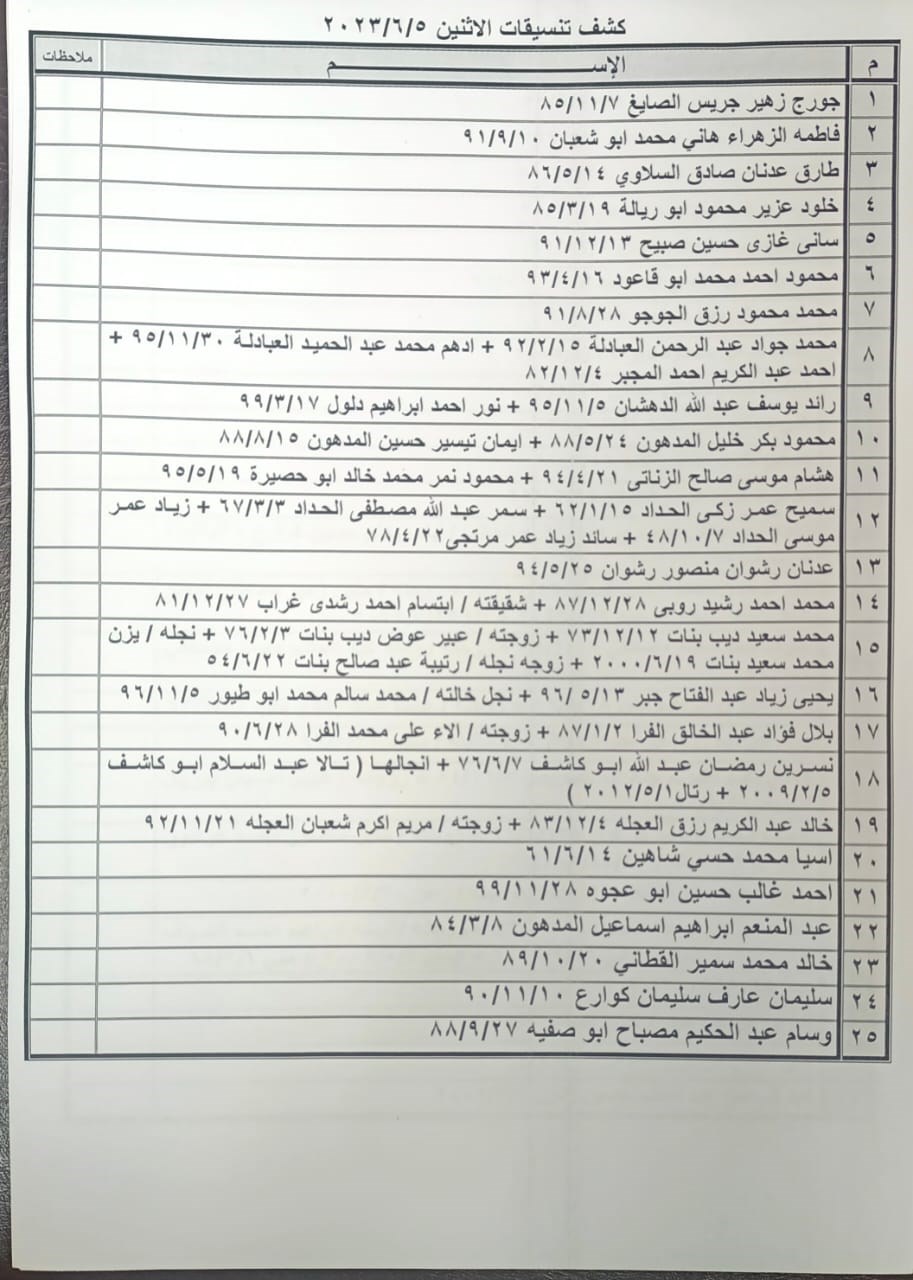 كشف تنسيقات الاثنين ٢٠٢٣/٦/٥
م الإســـــــــــــــم ملاحظات
١ جورج زهير جريس الصايغ ٨٥/١١/٧
٢ فاطمه الزهراء هاني محمد ابو شعبان ٩١/٩/١٠
٣ طارق عدنان صادق السلاوي ٨٦/٥/١٤
٤ خلود عزير محمود ابو ريالة ٨٥/٣/١٩
٥ سانى غازى حسين صبيح ٩١/١٢/١٣
٦ محمود احمد محمد ابو قاعود ٩٣/٤/١٦
٧ محمد محمود رزق الجوجو ٩١/٨/٢٨
٨ محمد جواد عبد الرحمن العبادلة ٩٢/٢/١٥ + ادهم محمد عبد الحميد العبادلة ٩٥/١١/٣٠ +
احمد عبد الكريم احمد المجبر ٨٢/١٢/٤
٩ رائد يوسف عبد الله الدهشان ٩٥/١١/٥ + نور احمد ابراهيم دلول ٩٩/٣/١٧
١٠ محمود بكر خليل المدهون ٨٨/٥/٢٤ + ايمان تيسير حسين المدهون ٨٨/٨/١٥
١١ هشام موسى صالح الزناتى ٩٤/٤/٢١ + محمود نمر محمد خالد ابو حصيرة ٩٥/٥/١٩
١٢ سميح عمر زكى الحداد ٦٢/١/١٥ + سمر عبد الله مصطفى الحداد ٦٧/٣/٣ + زياد عمر
موسى الحداد ٤٨/١٠/٧ + سائد زياد عمر مرتجى٧٨/٤/٢٢
١٣ عدنان رشوان منصور رشوان ٩٤/٥/٢٥
١٤ محمد احمد رشيد روبى ٨٧/١٢/٢٨ + شقيقته / ابتسام احمد رشدى غراب ٨١/١٢/٢٧
١٥ محمد سعيد ديب بنات ٧٣/١٢/١٢ + زوجته / عبير عوض ديب بنات ٧٦/٢/٣ + نجله / يزن
محمد سعيد بنات ٢٠٠٠/٦/١٩ + زوجه نجله / رتيبة عبد صالح بنات ٥٤/٦/٢٢
١٦ يحيى زياد عبد الفتاح جبر ٩٦/٥/١٣ + نجل خالته / محمد سالم محمد ابو طيور ٩٦/١١/٥
١٧ بلال فؤاد عبد الخالق الفرا ٨٧/١/٢ + زوجته / الاء على محمد الفرا ٩٠/٦/٢٨
١٨ نسرين رمضان عبد الله ابو كاشف ٧٦/٦/٧ + انجالها ( تالا عبد السلام ابو كاشف
٢٠٠٩/٢/٥ + رتال٢٠١٢/٥/١ )
١٩ خالد عبد الكريم رزق العجله ٨٣/١٢/٤ + زوجته / مريم اكرم شعبان العجله ٩٢/١١/٢١
٢٠ اسيا محمد حسي شاهين ٦١/٦/١٤
٢١ احمد غالب حسين ابو عجوه ٩٩/١١/٢٨
٢٢ عبد المنعم ابراهيم اسماعيل المدهون ٨٤/٣/٨
٢٣ خالد محمد سمير القطاني ٨٩/١٠/٢٠
٢٤ سليمان عارف سليمان كوارع ٩٠/١١/١٠
٢٥ وسام عبد الحكيم مصباح ابو صفيه ٨٨/٩/٢٧